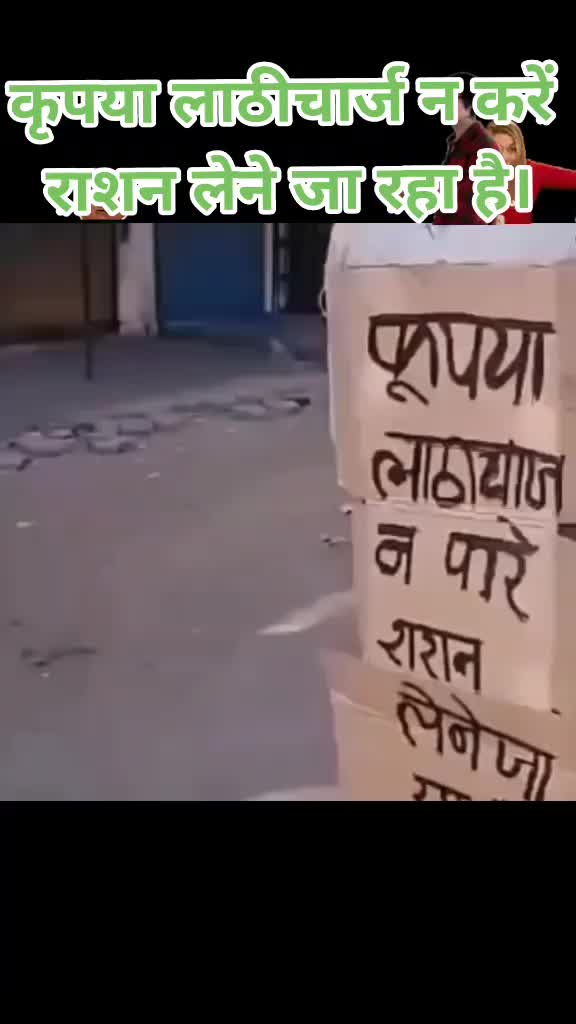 कृपया लाठीचार्ज न करें
राशन लेने जा रहा है।
कृपया
लाठीचार्ज
न करे
राशन
लेने जा